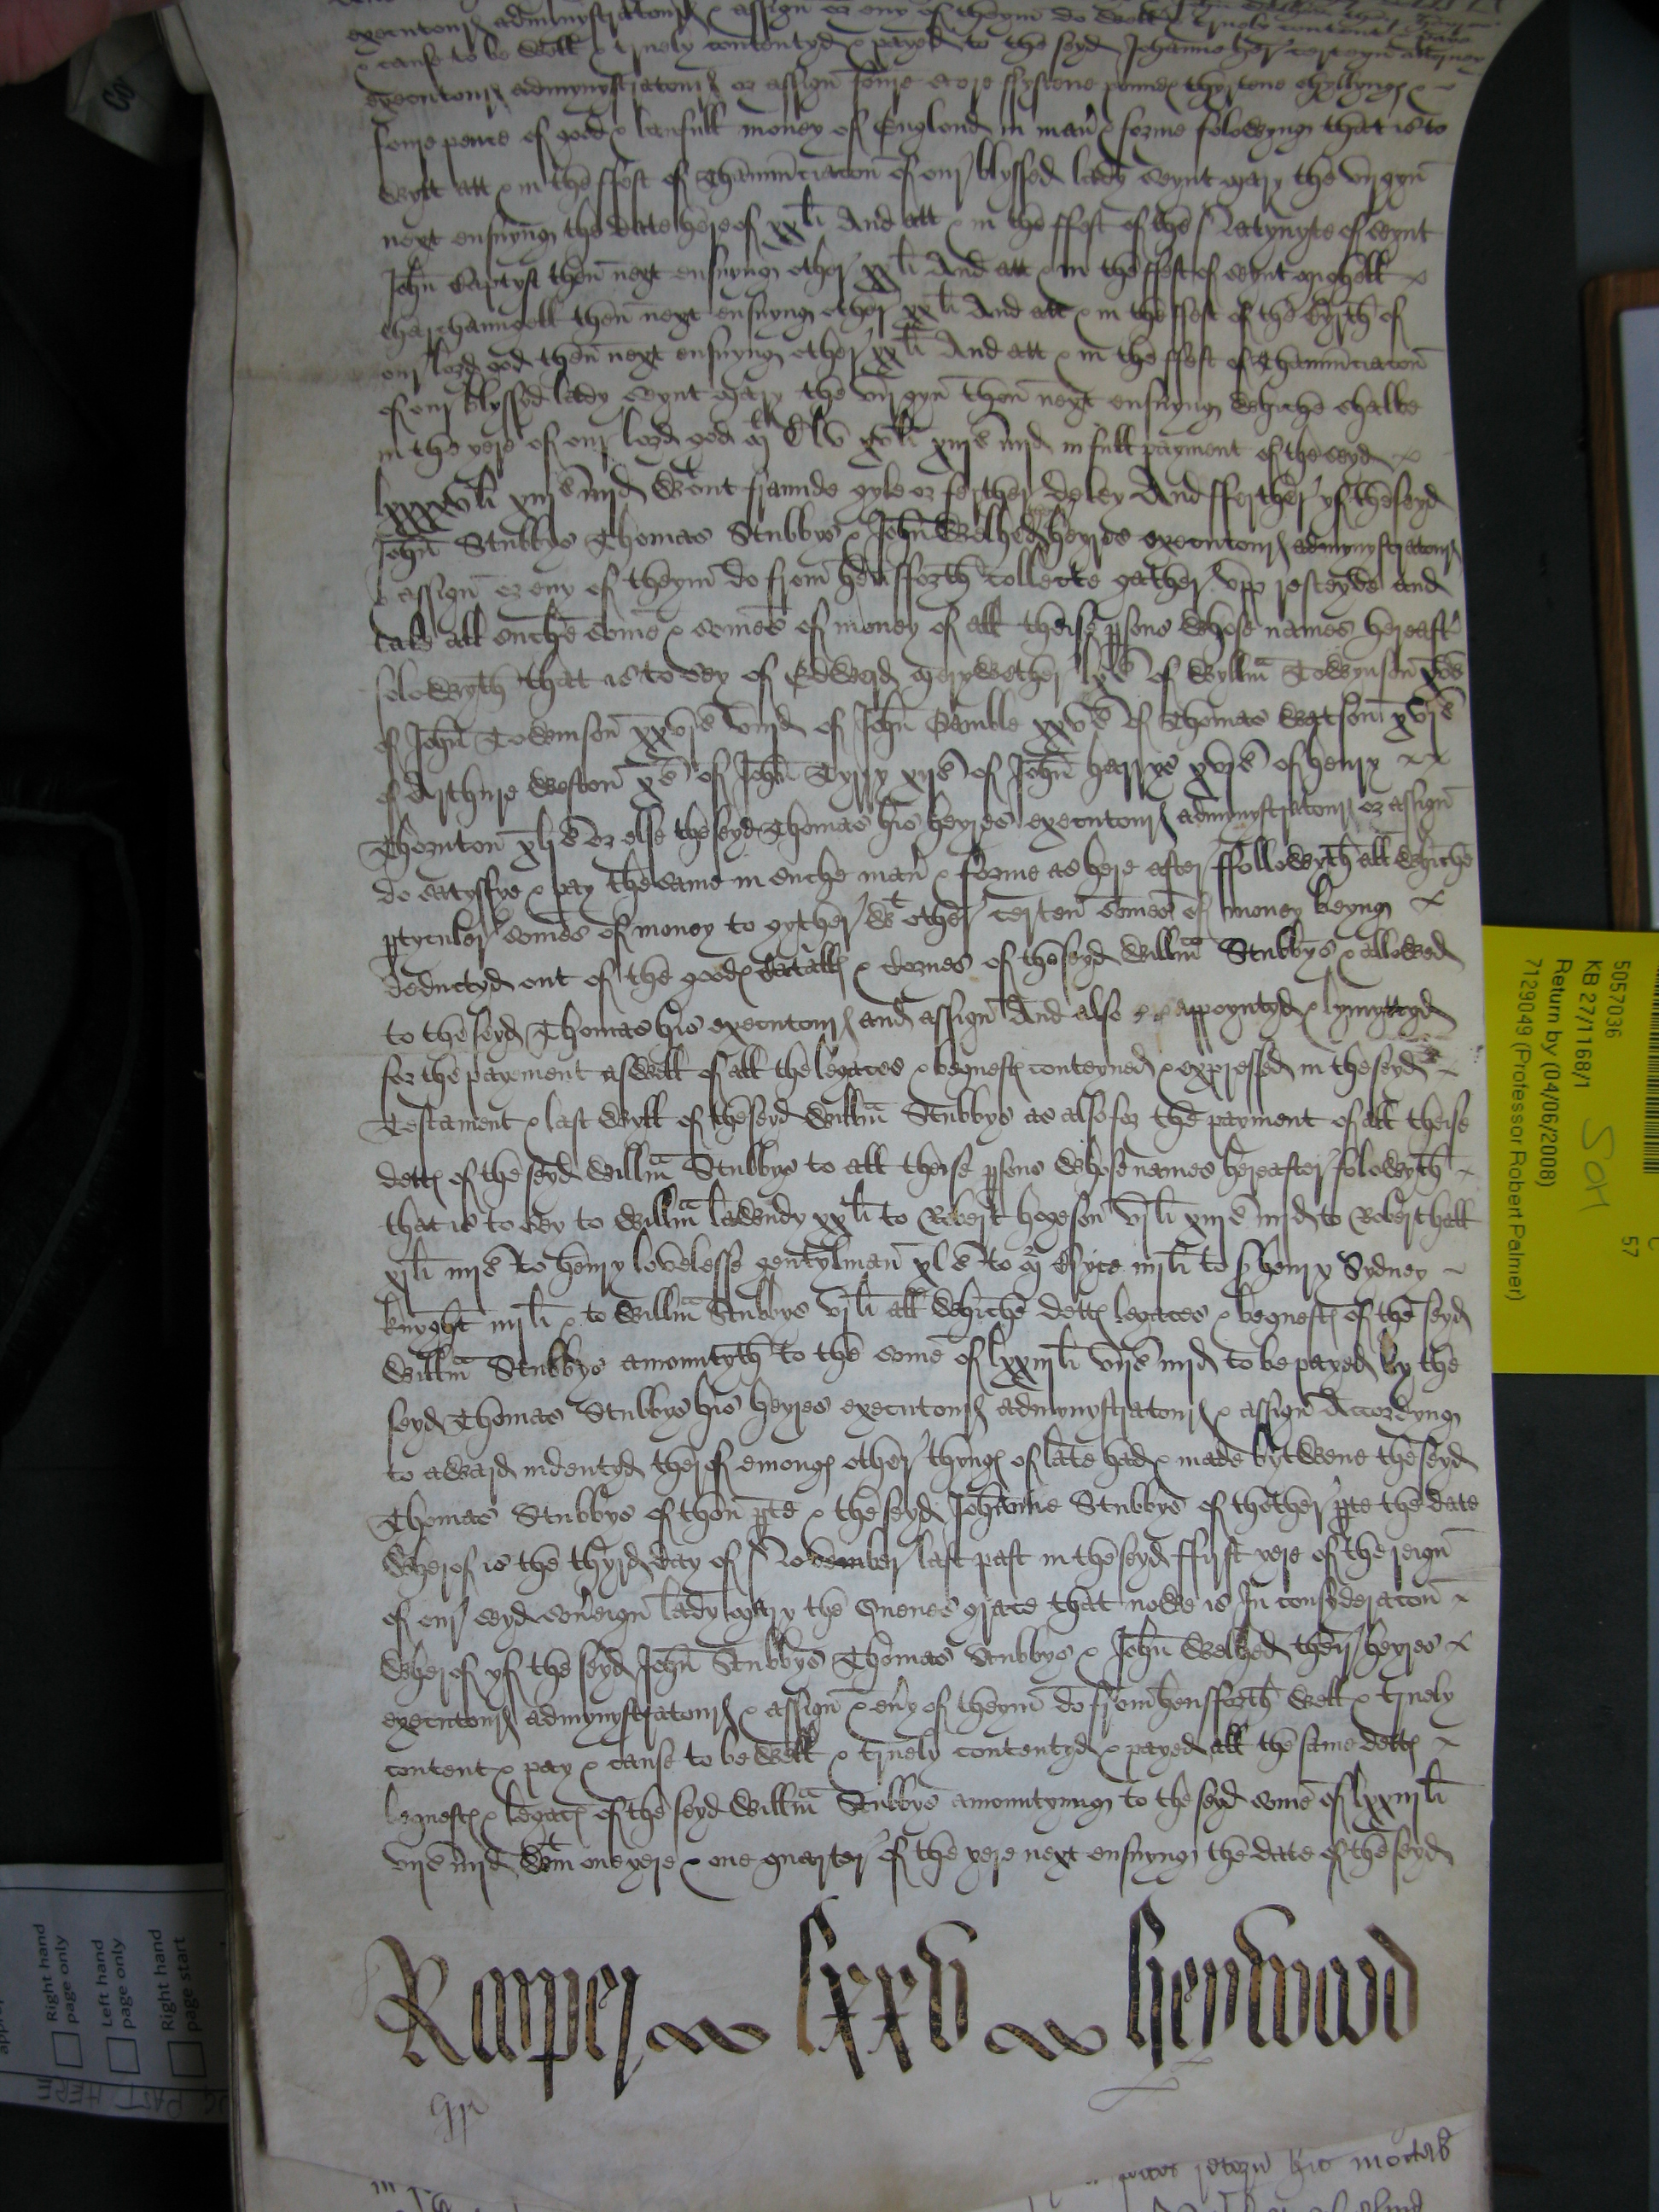 executours admynystratours & assign or eny of theym do well & truely content & paye
& cause to be well & truely contentyd & payed to the seyd Johanne her certeyn attorney
executours admynystratours or assign foure score fyftene poundes thyrtene shyllynges &
foure pence of good & laufull money of Englond in man & forme folowyng that is to
wytt att & in the ffest of Thannunciacon of our blyssed lady Seynt Mary the virgyn
next ensuyng the date hereof xx li And att & in the ffest of the Natyvyte of Seynt
John Baptyst then next ensuyng other xx li And att & in the ffest of Seynt Mighell
tharchaungell then next ensuyng other xx li And att & in the ffest of the Byrth of
our lord god then next ensuyng other xx li And att & in the ffest of Thannunciacon
of our blyssed lady Seynt Mary the virgyn then next ensuyng whiche shalbe
in the yere of our lord god M Dlv xv li xiij s iiij d in full payment of the seyd
lxxxxv li xiij s iiij d wtout fraude gyle or ferther deley And fferther yf the seyd
John Stubbys Thomas Stubbys & John Welhed heyres executours admynystratours
& assign or eny of theym do from hensfforth collecte gather upp resceyve and
take all suche some & somes of money of all theise psons whose names hereaft
folowyth that is to sey of Edward Merywether lx s of Wyllm Towynson xv s
of John Towinson xxvj s viij d of John Gamble xxv s of Thomas Watson xvj s
of Arthure Weston x s of John Tyrry xij s of John Harrys xvj s of Henry
Thornton xlj s or else the seyd Thomas his heyres executours admynystratours or assign
do satysfye & pay the same in suche man & forme as here after ffollowyth all whiche
ptyculer somes of money to gyther wt other certen somes of money beyng
deductyd out of the goodes catalles & cornes of the seyd Willm Stubbys & allowed
to the seyd Thomas his executours and assign And also appoyntyd & lymyttyd
for the payement aswell of all the legaces & bequestes conteyned & expressed in the seyd
Testament & last wyll of the seyd Willm Stubbys as also for the payment of all theise
dettes of the seyd Willm Stubbys to all theise psons whose names hereafter folowyth
that is to sey to Willm Lawendy xx li to Robert Hogeson vj li xiij s iiij d to Robert Hall
xj li iiij s to Henry Lovelesse gentylman xl s to M Bryce iiij li to Sr Henry Sydney
knyght iiij li & to Willm Stubbys vj li all whiche dettes legaces & bequestes of the seyd
Willm Stubbys amountyth to the some of lxxiij li vij s iiij d to be payed by the
seyd Thomas Stubbys his heyres executours admynystratours & assign Accordyng
to award indentyd therof emonges other thynges of late had & made bytwene the seyd
Thomas Stubbys of thon pte & the seyd Johanne Stubbys of thother pte the date
wherof is the thyrd day of November last past in the seyd ffirst yere of the reign
of our seyd souvreign lady Mary the Quenes grace that nowe is In consyderacon
wherof yf the seyd John Stubbys Thomas Stubbys & John Welhed their heyres
executours admynystratours & assign & eny of theym do from hensfforth well & truely
content & pay & cause to be well & truely contentyd & payed all the same dettes
bequestes & legaces of the seyd Willm Stubbys amountyng to the seyd some of lxxiij li
vij s iiij d wtin one yere & one quarter of the yere next ensuyng the date of the seyd
Roper lxxv Heywood
5057036
KB 27/1168/1
Return by (04/06/2008)
7129049 (Professor Robert Palmer)
SOM
57
Right hand page only
Left hand page only
Right hand page start